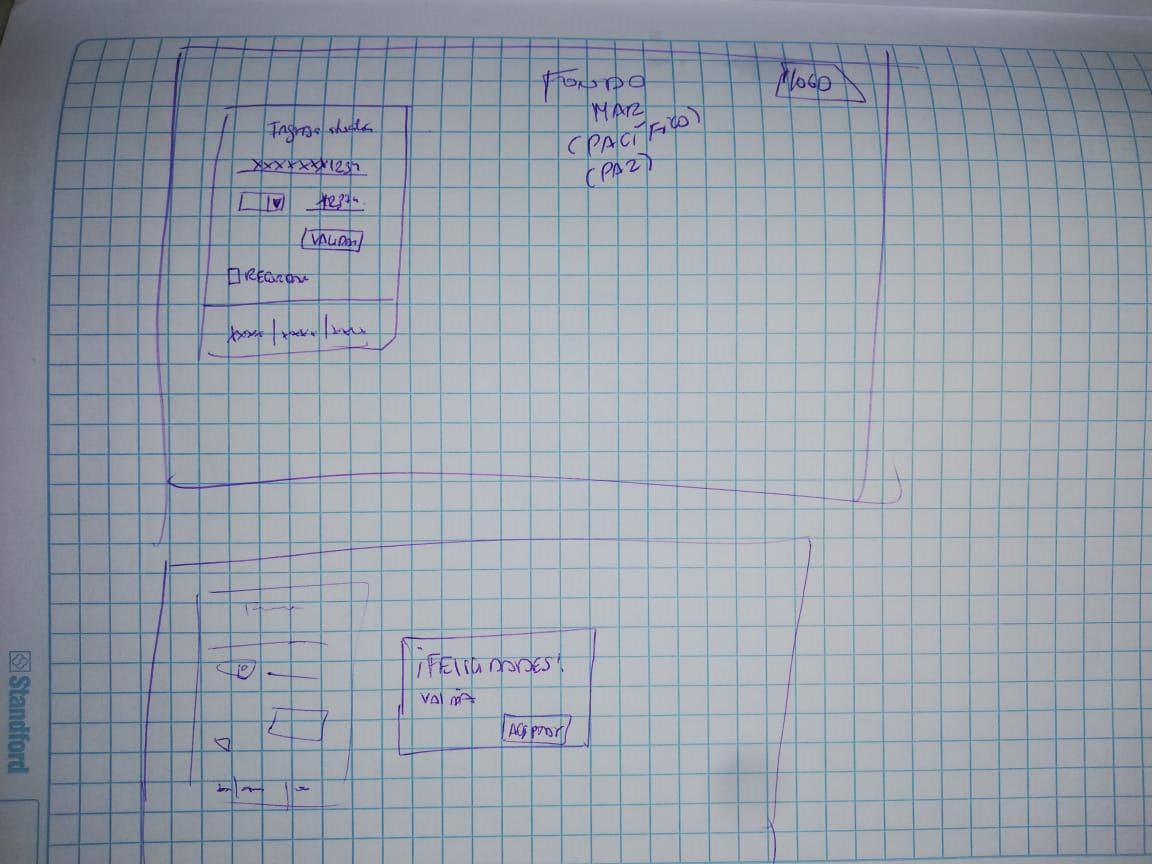 FONDO
MAR
(PACIFICO)
(PAZ)
LOGO
Ingrese
xxxxxxx1234
1234
VALIDAR
RECORDAR
xxxx | xxxx | xxxx
¡FELICIDADES!
ACEPTAR
Standford